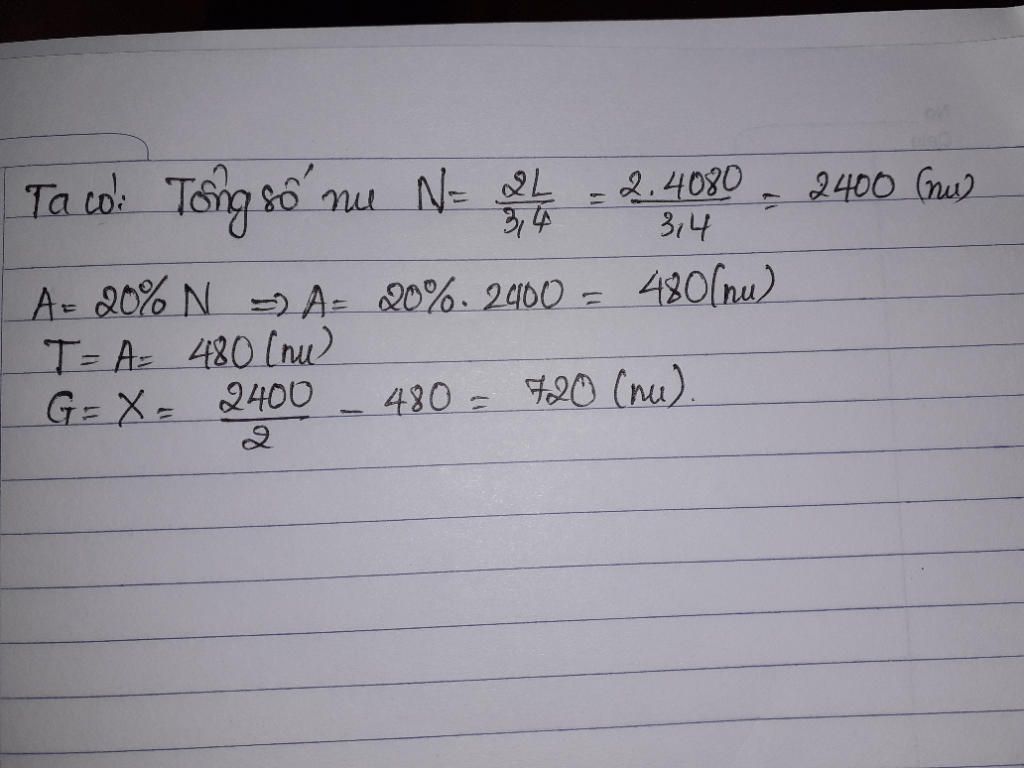 Ta có: Tổng số nu N = 2L/3,4 = 2.4080/3,4 = 2400 (nu)
A = 20% N => A = 20%. 2400 = 480 (nu)
T = A = 480 (nu)
G = X = 2400/2 - 480 = 720 (nu).